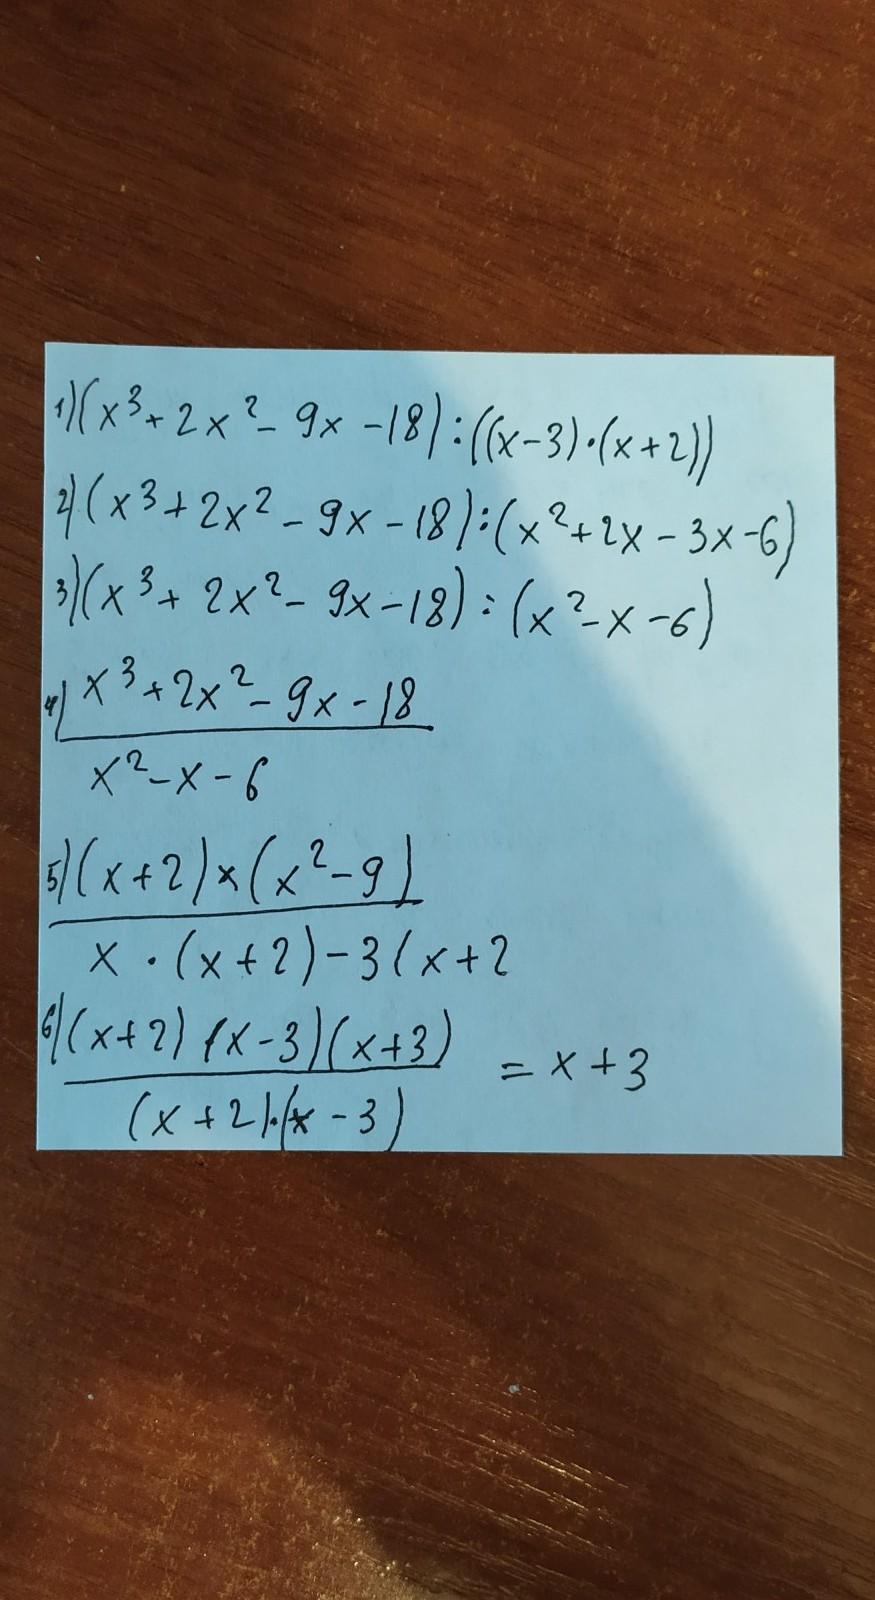 1) (x³+2x²-9x-18):((x-3)·(x+2))
2) (x³+2x²-9x-18):(x²+2x-3x-6)
3) (x³+2x²-9x-18):(x²-x-6)
4) x³+2x²-9x-18
x²-x-6
5) (x+2)×(x²-9)
x·(x+2)-3(x+2
6) (x+2)(x-3)(x+3) = x+3
(x+2)·(x-3)